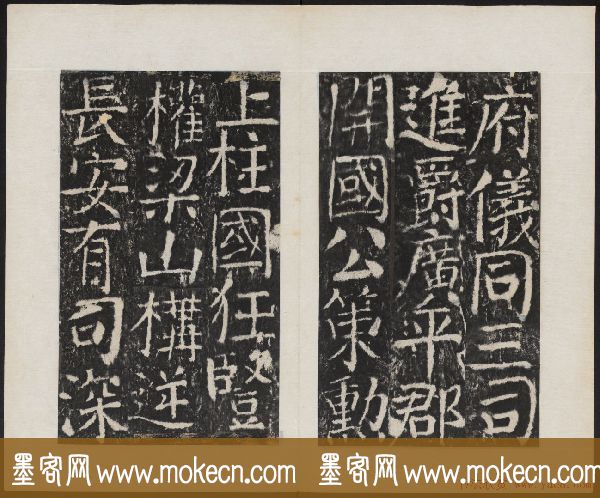 府儀同三司
進爵廣平郡
開國公策勳
上柱國狂豎
權梁山構逆
長安有司深
墨客网 www.mokecn.com
墨客网 www.mokecn.com